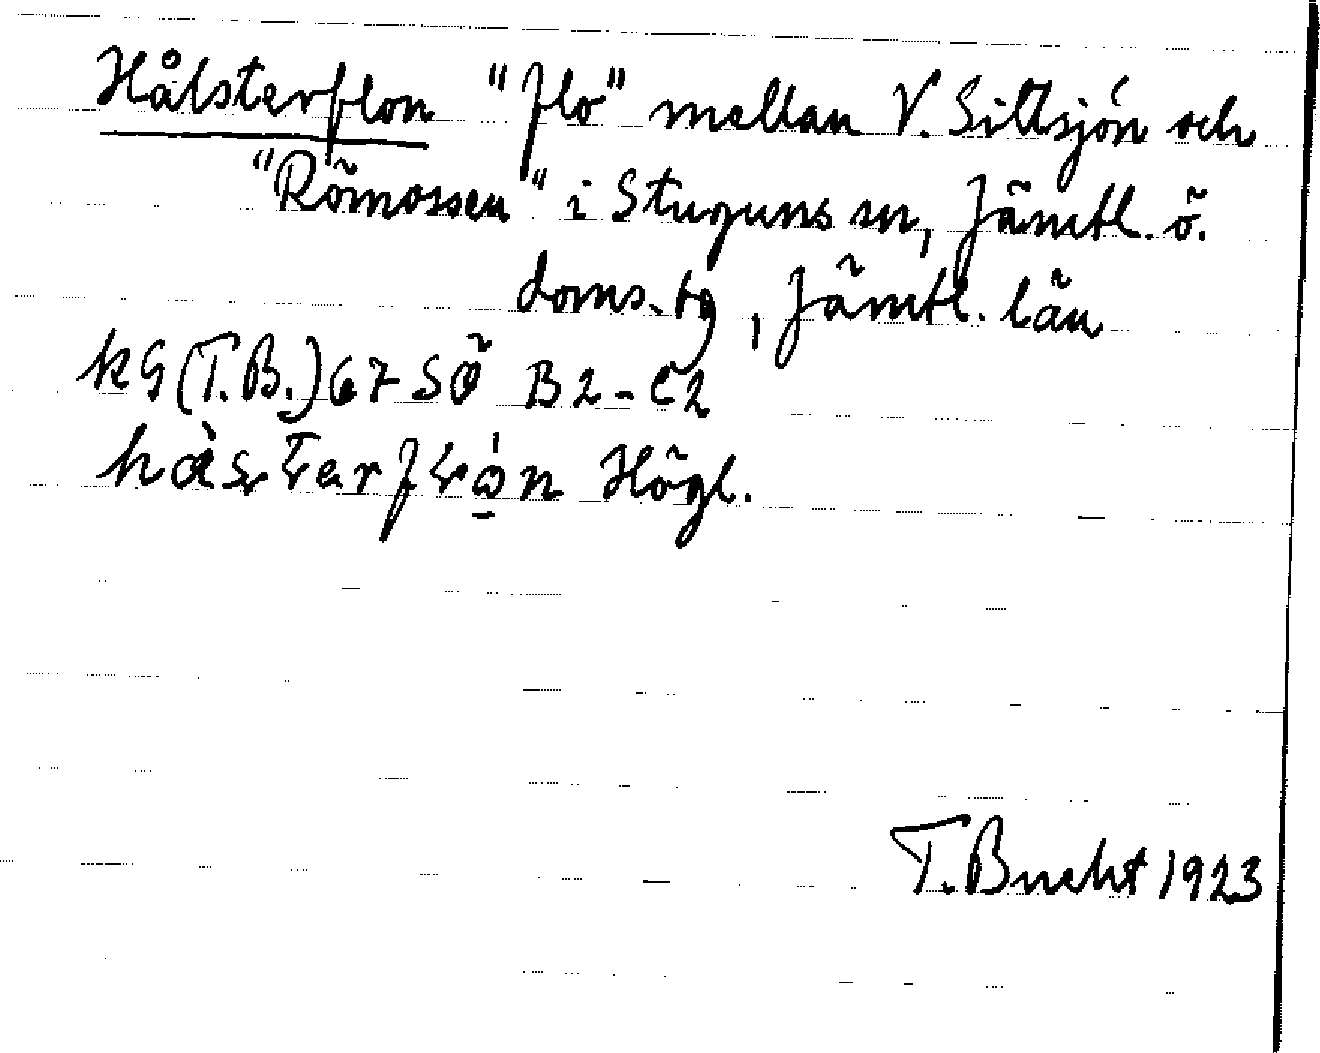 Hålsterflon "flo" mellan V. Siltsjön och
"Römossen" i Stuguns sn, Jämtl. ö.
doms.-tg, Jämtl. län
kg (T.B.) 67 SÖ B2-C2
Högl.
T. Bucht 1923